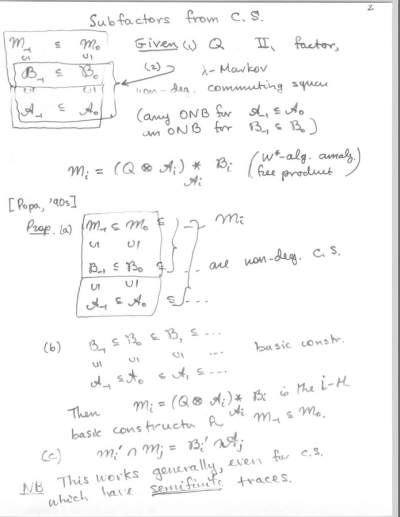 2
Subfactors from C.S.
M₋₁ ⊆ M₀
∪I ∪I
B₋₁ ⊆ B₀
∪I ∪I
A₋₁ ⊆ A₀
Given (1) Q II₁ factor,
(2) λ-Markov
non-deg. commuting square
(any ONB for A₋₁ ⊆ A₀
an ONB for B₋₁ ⊆ B₀)
Mᵢ = (Q ⊗ Aᵢ) * Bᵢ (W*-alg. amalg.
Aᵢ free product)
[Popa, '90s]
Prop. (a) M₋₁ ⊆ M₀ ⊆ ... Mᵢ
∪I ∪I
B₋₁ ⊆ B₀ ⊆ ... are non-deg. C.S.
∪I ∪I
A₋₁ ⊆ A₀ ⊆ ...
(b) B₋₁ ⊆ B₀ ⊆ B₁ ⊆ ...
∪I ∪I ∪I ... basic constr.
A₋₁ ⊆ A₀ ⊆ A₁ ⊆ ...
Then Mᵢ = (Q ⊗ Aᵢ) * Bᵢ is the i-th
Aᵢ
basic constructn of M₋₁ ⊆ M₀.
(c) Mᵢ' ∩ Mⱼ = Bᵢ' ∩ Aⱼ
NB This works generally, even for C.S.
which have semifinite traces.